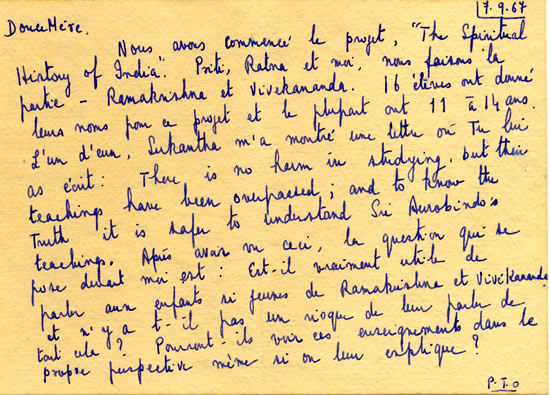 7.9.67
Douce Mère.
Nous avons commencé le projet, "The Spiritual
History of India". Priti, Ratna et moi, nous faisons la
partie – Ramakrishna et Vivekananda. 16 élèves ont donné
leurs noms pour ce projet et la plupart ont 11 à 14 ans.
L'un d'eux, Sukantha m'a montré une lettre où Tu lui
as écrit : There is no harm in studying, but their
teachings have been overpassed ; and to know the
Truth it is safer to understand Sri Aurobindo's
teachings. Après avoir vu ceci, la question qui se
pose devant moi est : Est-il vraiment utile de
parler aux enfants si jeunes de Ramakrishna et Vivékananda
et n'y a t-il pas un risque de leur parler de
tout cela ? Pourront-ils voir ces enseignements dans le
propre perspective même si on leur explique ?
P.T.O